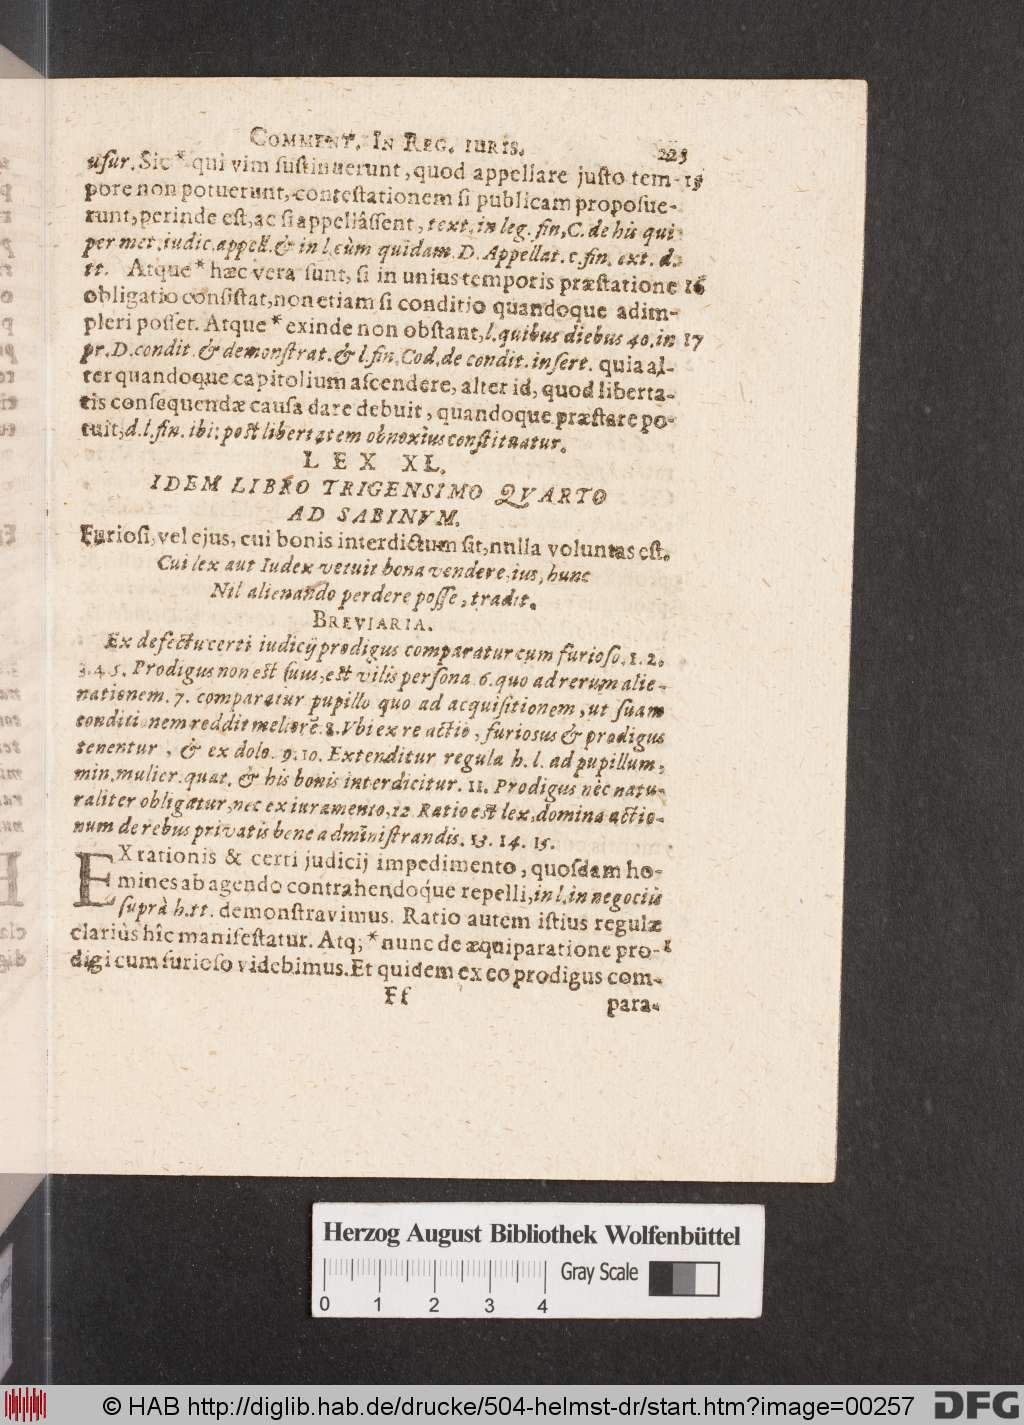 COMMENT. IN REG. IURIS. 225
uſur. Sic * qui vim ſuſtinuerunt, quod appellare juſto tem- 15
pore non potuerunt, conteſtationem ſi publicam propoſue-
runt, perinde eſt, ac ſi appellâſſent, text. in leg. fin, C. de his qui
per met. iudic. appell. & in l. cùm quidam. D. Appellat. c. fin. ext. d.
tt. Atque * hæc vera ſunt, ſi in unius temporis præſtatione 16
obligatio conſiſtat, non etiam ſi conditio quandoque adim-
pleri poſſet. Atque * exinde non obſtant, l. quibus diebus 40. in 17
pr. D. condit. & demonſtrat. & l. fin. Cod. de condit. inſert. quia al-
ter quandoque capitolium aſcendere, alter id, quod liberta-
tis conſequendæ cauſa dare debuit, quandoque præſtare po-
tuit, d. l. fin. ibi: poſt libertatem obnoxius conſtituatur.
LEX XL.
IDEM LIBRO TRIGENSIMO QVARTO
AD SABINVM.
Furioſi, vel ejus, cui bonis interdictum ſit, nulla voluntas eſt.
Cui lex aut Iudex vetuit bona vendere, ius, hunc
Nil alienando perdere poſſe, tradit.
BREVIARIA.
Ex defectu certi iudicij prodigus comparatur cum furioſo. 1. 2.
3. 4. 5. Prodigus non eſt ſuus, eſt vilis perſona. 6. quo ad rerum alie-
nationem. 7. comparatur pupillo quo ad acquiſitionem, ut ſuam
conditionem reddit meliorē. 8. Vbi ex re actio, furioſus & prodigus
tenentur, & ex dolo. 9. 10. Extenditur regula h. l. ad pupillum,
min. mulier. quat. & his bonis interdicitur. 11. Prodigus nec natu-
raliter obligatur, nec ex iuramento, 12. Ratio eſt lex, domina actio-
num de rebus privatis bene adminiſtrandis. 13. 14. 15.
EX rationis & certi judicij impedimento, quoſdam ho-
mines ab agendo contrahendoq́ue repelli, in l. in negociis
ſuprà h. tt. demonſtravimus. Ratio autem iſtius regulæ
clariùs hîc manifeſtatur. Atq; * nunc de æquiparatione pro- 1
digi cum furioſo videbimus. Et quidem ex eo prodigus com-
Ff para-
Herzog August Bibliothek Wolfenbüttel
Gray Scale
0 1 2 3 4
© HAB http://diglib.hab.de/drucke/504-helmst-dr/start.htm?image=00257 DFG